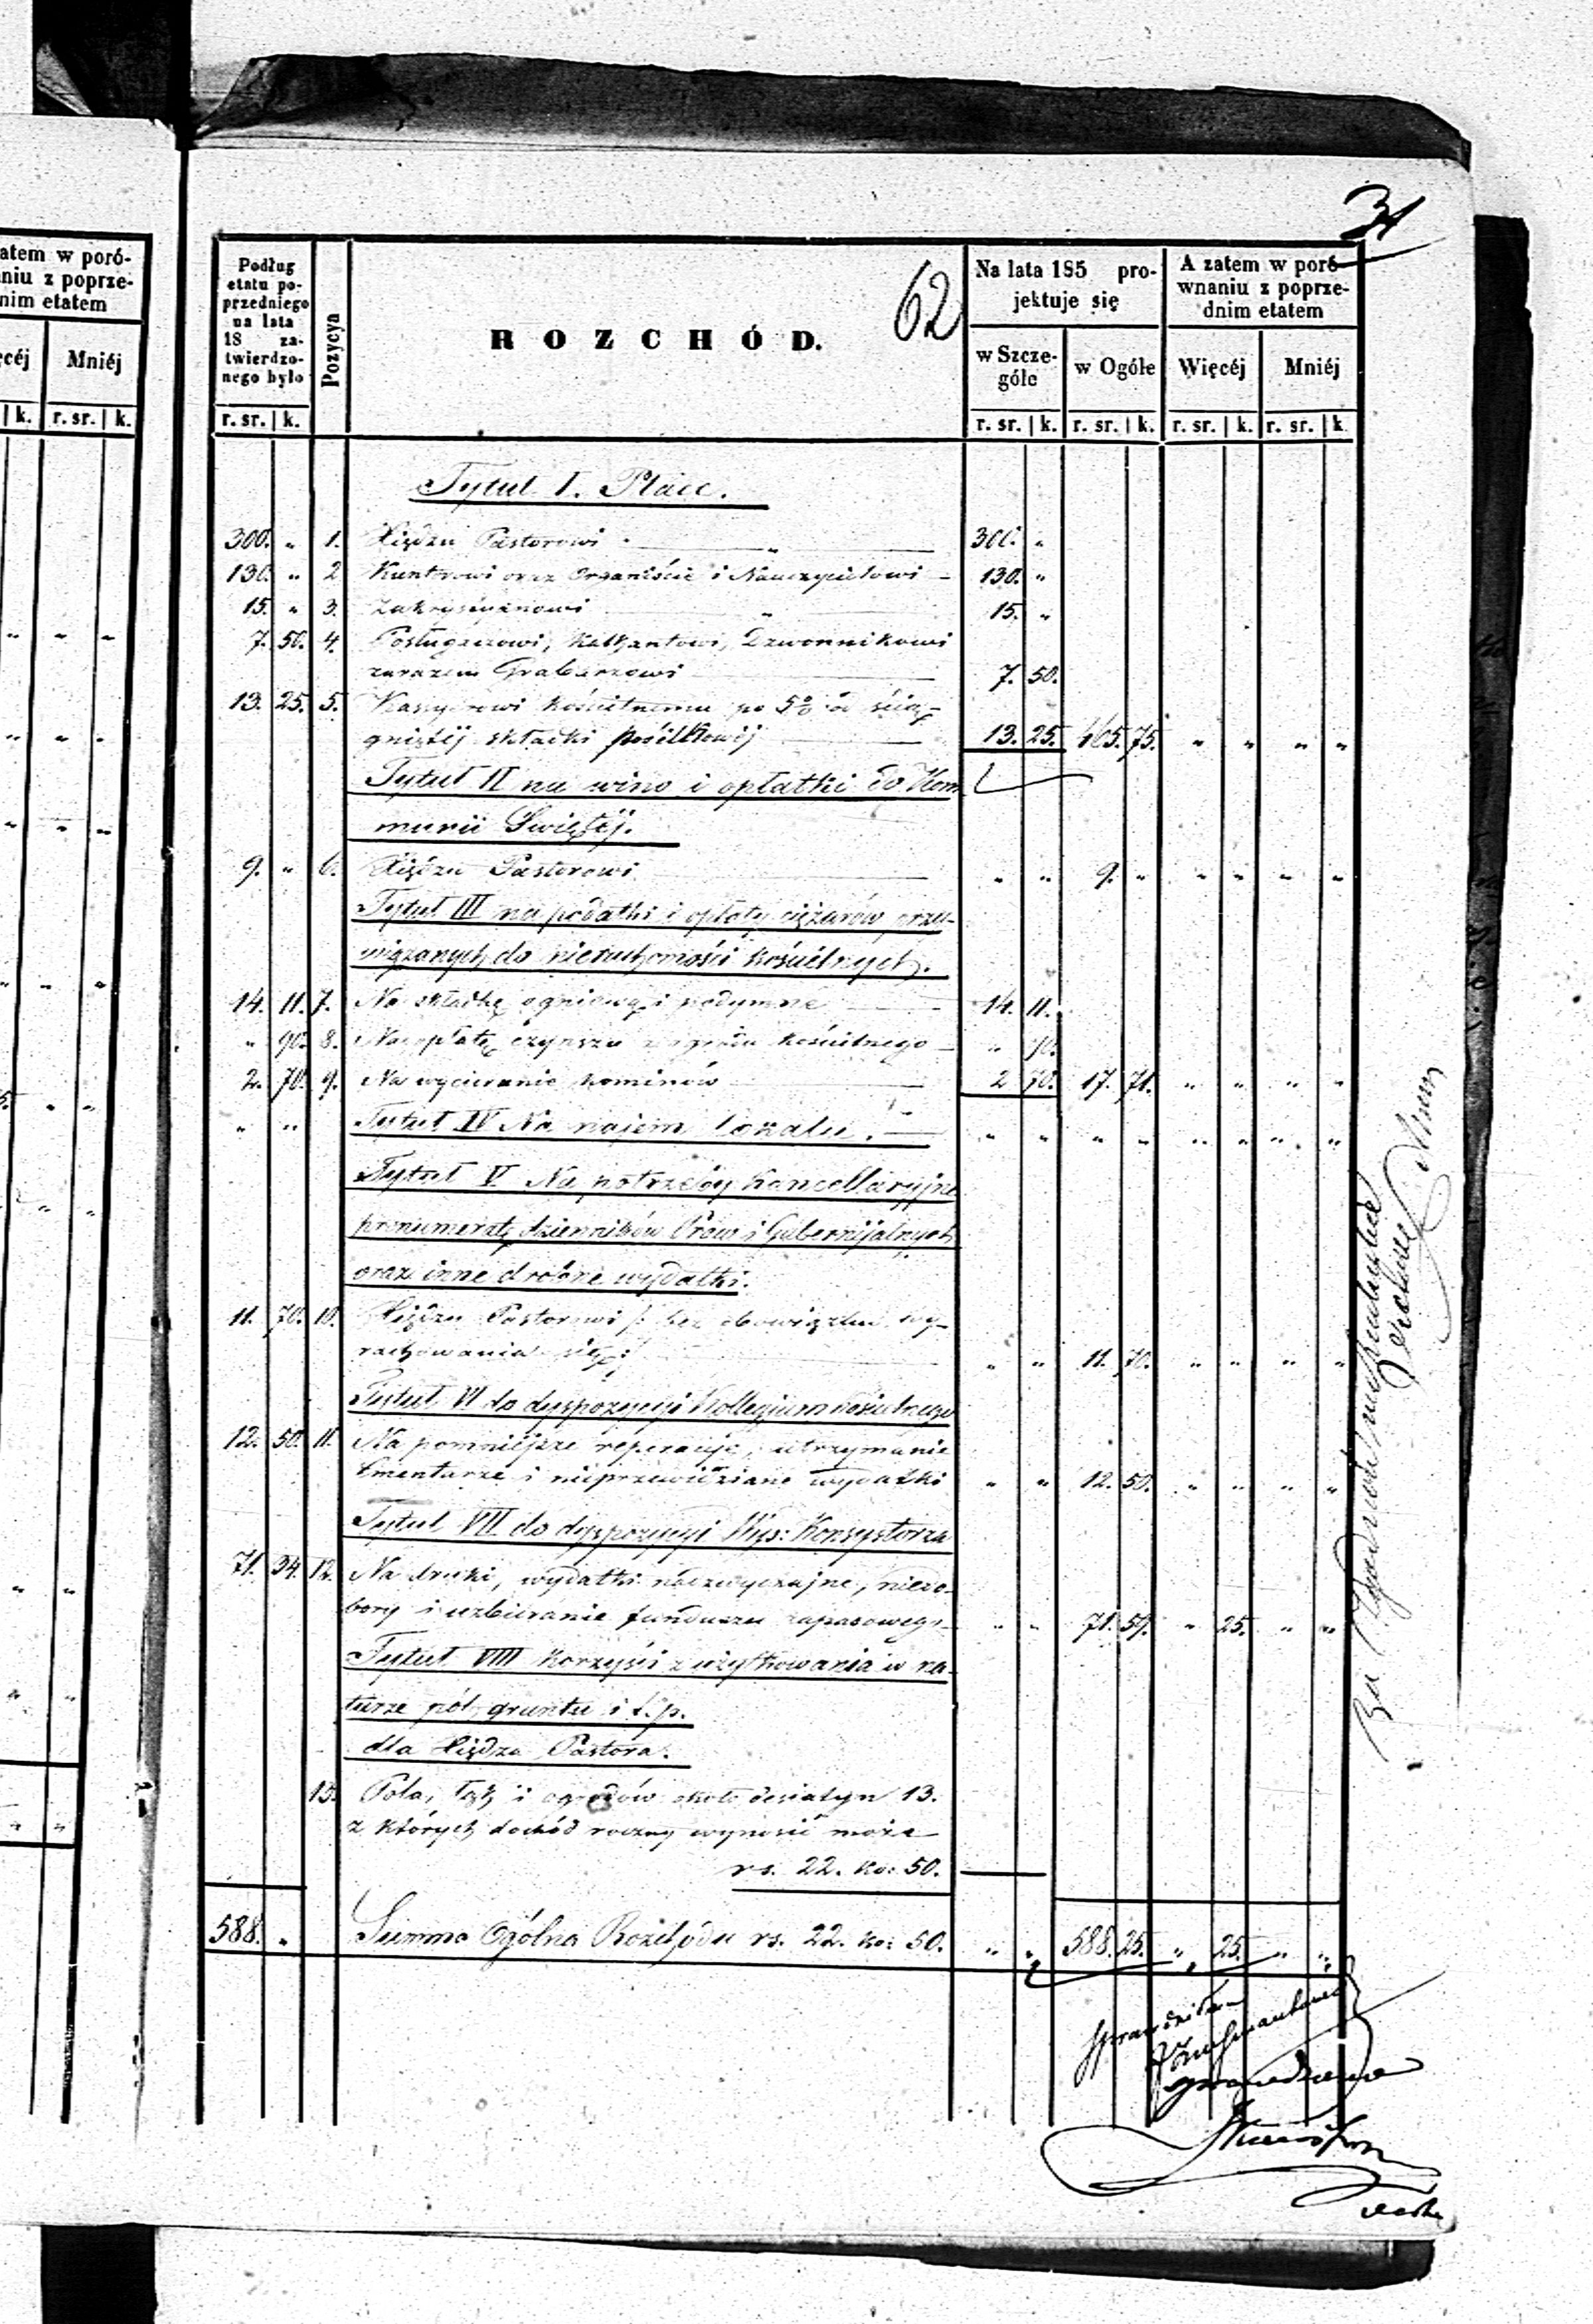 31
62
atem w poró-
niu z poprze-
nim etatem
ęcéj Mniéj
k. r. sr. k.
Podług
etatu po-
przedniego
na lata
18 za-
twierdzo-
nego było
r. sr. k.
Pozycya
ROZCHÓD.
Na lata 185 pro-
jektuje się
w Szcze-
góle
w Ogóle
r. sr. k. r. sr. k.
A zatem w poró-
wnaniu z poprze-
dnim etatem
Więcéj Mniéj
r. sr. k. r. sr. k.
Tytuł I. Płace.
300. „ 1. Xiędzu Pastorowi „ 300. „
130. „ 2 Kantorowi oraz Organiście i Nauczycielowi 130. „
15. „ 3. Zakrystyanowi „ 15. „
7. 50. 4. Posługaczowi, Kalkantowi, Dzwonnikowi
zarazem Grabarzowi 7. 50.
13. 25. 5. Kassyerowi kościelnemu po 5% od ścią-
gniętéj składki posiłkowéj 13. 25. 465. 75. „ „ „ „
Tytuł II na wino i opłatki do Kom-
munii Świętéj.
9. „ 6. Xiędzu Pastorowi „ „ 9. „ „ „ „ „
Tytuł III na podatki i opłaty ciężarów przy-
wiązanych do nieruchomości kościelnych.
14. 11. 7. Na składkę ogniową i podymne 14. 11.
„ 90. 8. Na opłatę czynszu z kościelnego „ 90.
2. 70. 9. Na wycieranie kominów 2 70. 17. 71. „ „ „ „
„ „ Tytuł IV Na najem lokalu. „ „ „ „ „ „ „ „
Tytuł V. Na potrzeby kancellaryjne
prenumeratę dzienników Praw i Gubernijalnych
oraz inne drobne wydatki.
11. 70. 10. Xiędzu Pastorowi /: bez obowiązku wy-
rachowania się :/ „ „ 11. 70. „ „ „ „
Tytuł VI do dyspozycyi Kollegium kościelnego
12. 50. 11. Na pomniejsze reperacye, utrzymanie
Cmentarza i nieprzewidziane wydatki „ „ 12. 50. „ „ „ „
Tytuł VII do dyspozycyi Wys: Konsystorza
71. 34. 12. Na druki, wydatki nadzwyczajne, niedo-
bory i uzbieranie funduszu zapasowego „ „ 71. 59. „ 25. „ „
Tytuł VIII Korzyści z użytkowania w na-
turze pól, gruntu i t. p.
dla Xiędza Pastora.
13. Pola, łąk i ogrodów około desiatyn 13.
z których dochód roczny wynosić może
rs. 22. ko: 50.
588. „ Summa Ogólna Rozchodu rs. 22. ko: 50. „ „ 588. 25. „ 25. „ „
Za